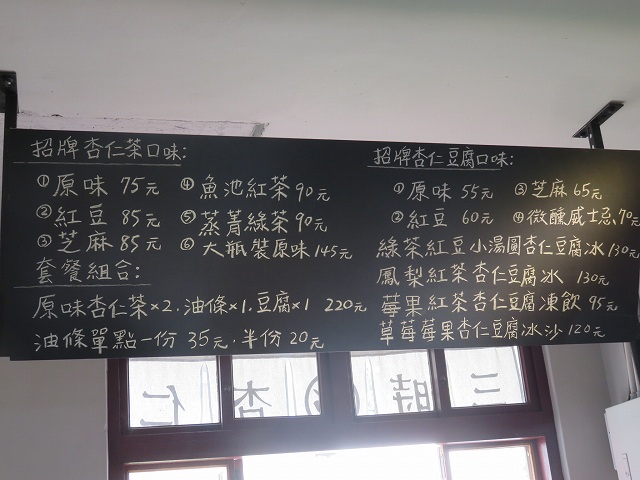 招牌杏仁茶口味:
①原味 75元 ④魚池紅茶 90元
②紅豆 85元 ⑤蒸菁綠茶 90元
③芝麻 85元 ⑥大瓶裝原味 145元
套餐組合:
原味杏仁茶×2.油條×1.豆腐×1 220元
油條單點一份 35元.半份 20元
招牌杏仁豆腐口味:
①原味 55元 ③芝麻 65元
②紅豆 60元 ④微醺威士忌 70元
綠茶紅豆小湯圓杏仁豆腐冰 130元
鳳梨紅茶杏仁豆腐冰 130元
莓果紅茶杏仁豆腐凍飲 95元
草莓莓果杏仁豆腐冰沙 120元
仁 杏 時 三